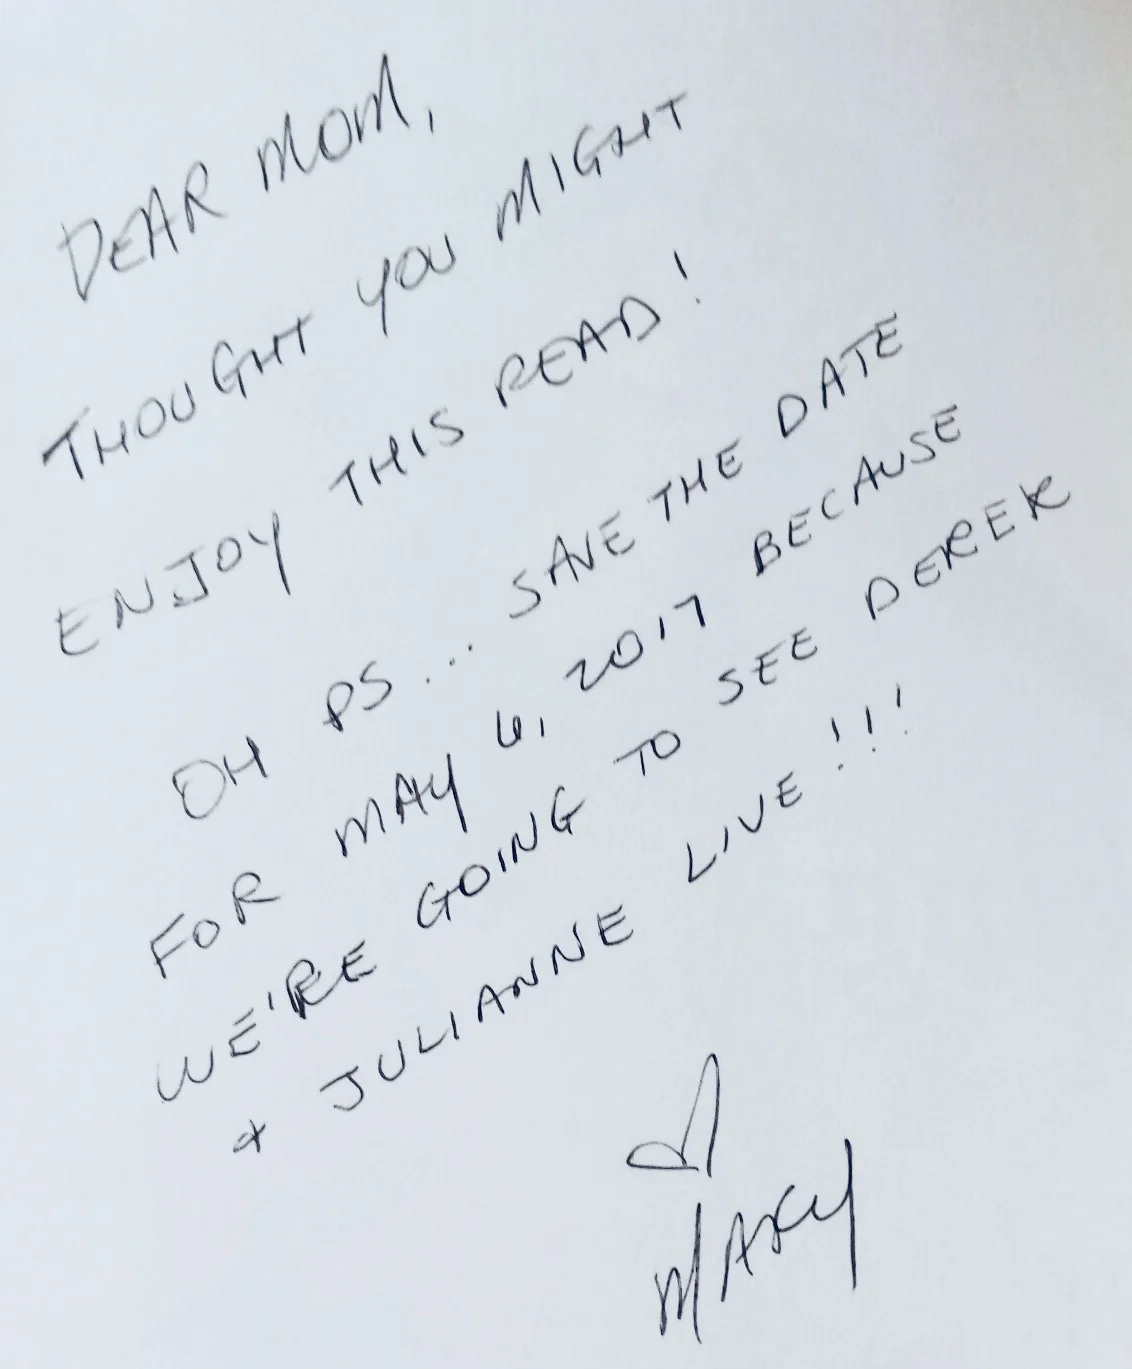 DEAR MOM,
THOUGHT YOU MIGHT
ENJOY THIS READ!
OH PS... SAVE THE DATE
FOR MAY 6, 2017 BECAUSE
WE'RE GOING TO SEE DEREK
& JULIANNE LIVE!!!
♡
MARY